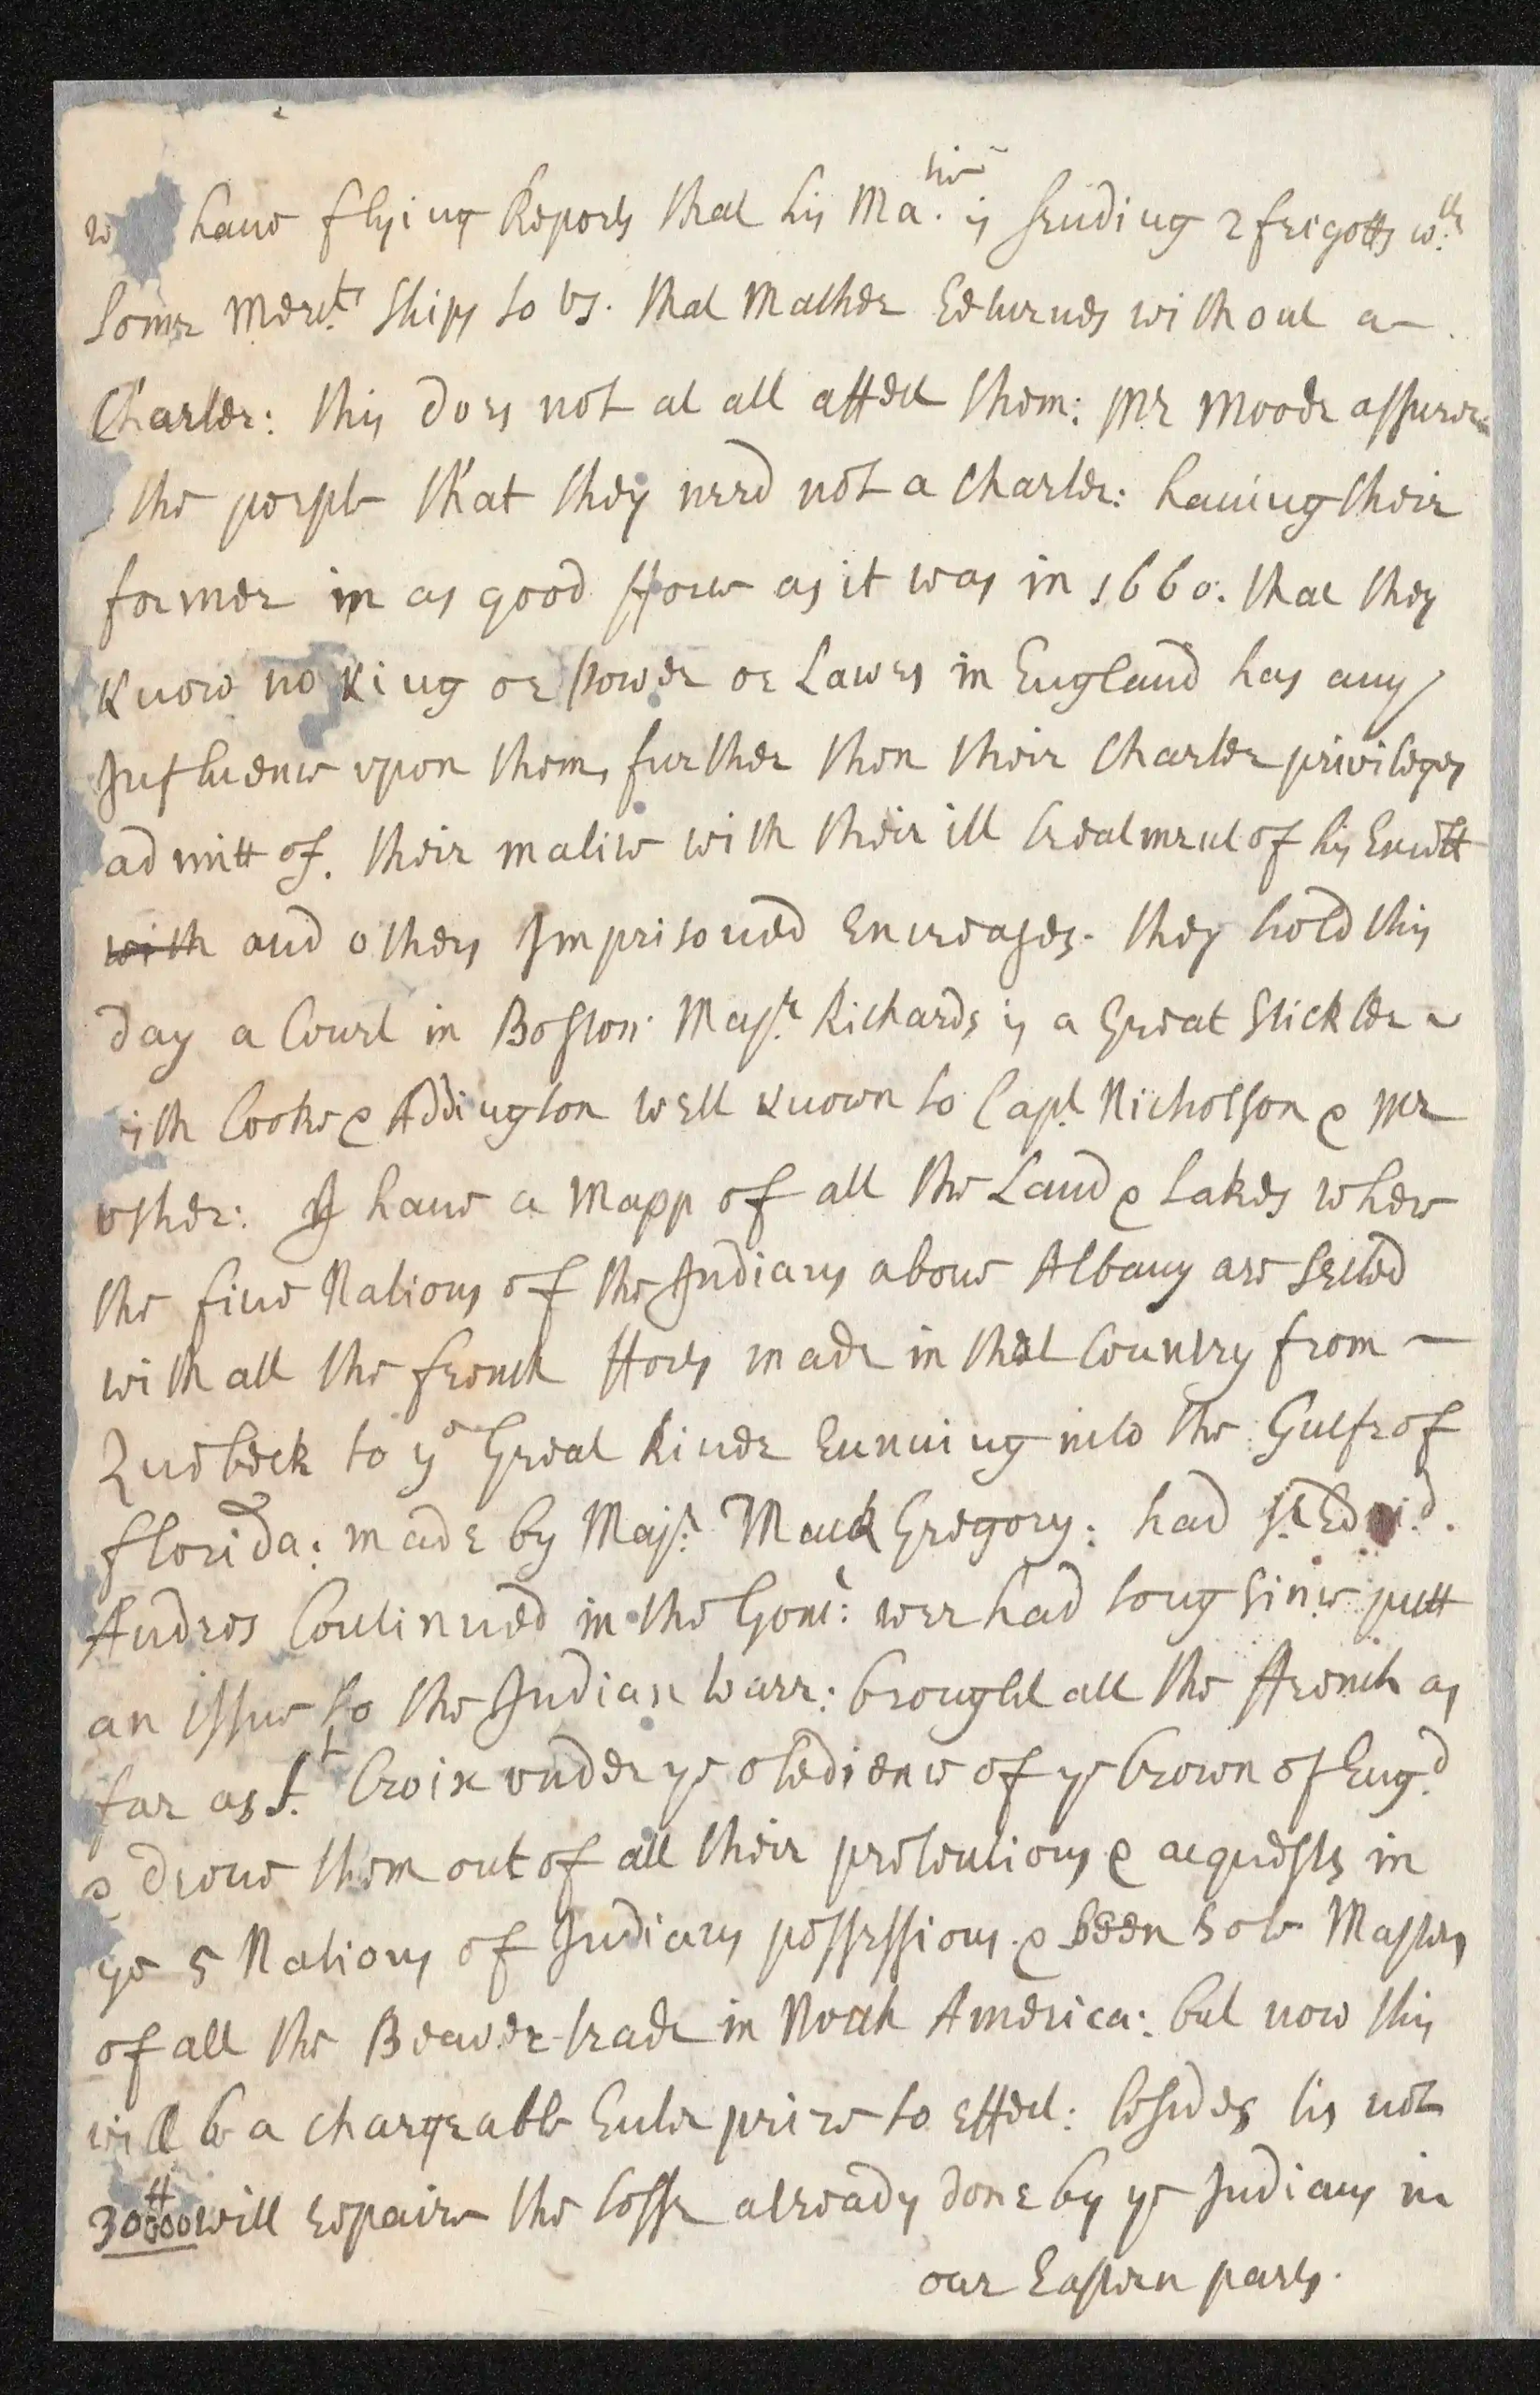 w have flying Reports that his Ma.tie is sending 2 frigotts w.th
some Merct.s ships to vs. that Mather Returnes without a
Charter: this does not at all affect them: Mr Moode assures
the people that they need not a Charter: having their
former in as good fforce as it was in 1660: that they
know no King or Power or Lawes in England has any
Influence vpon them, further then their Charter priviledges
admitt of. their malice with their ill treatment of his Excell
with and others Imprisoned Encreases. they hold this
day a Court in Boston. Maj.r Richards is a Great Stickler
ith Cooke & Addington well known to Capt. Nicholson & Mr
vsher: I have a Mapp of all the Land & Lakes where
the five Nations of the Indians above Albany are seated
with all the french fforts made in that Country from
Quebeck to ye Great River running into the Gulfe of
florida: made by Maj.r Mack Gregory: had Sr Edm.d
Andros Continued in the Gomt: wee had long since putt
an issue to the Indian warr: brought all the ffrench as
far as St. Croix vnder ye obedience of ye Crown of Eng.d
& drove them out of all their pretentions & acquests in
ye 5 Nations of Indians possessions. & been sole Masters
of all the Beaver-trade in North America: but now this
will be a chargeable Enterprize to effect: besides tis not
30000tt will repaire the losse already done by ye Indians in
our Eastern parts.